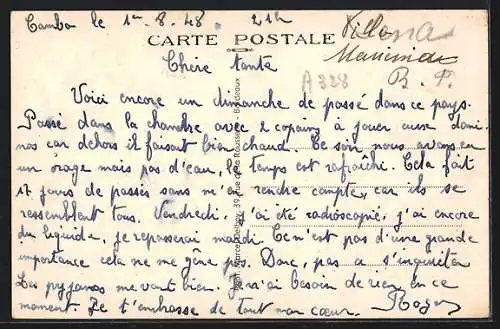 Cambo le 1er. 8. 48. 21h
Villa
CARTE POSTALE
B. P.
Chère tante
A 328
Voici encore un dimanche de passé dans ce pays.
Passé dans la chambre avec 2 copains à jouer aux domi-
nos car dehors il faisait bien chaud. Ce soir nous avons eu
un orage mais pas d'eau, le temps est rafraichi. Cela fait
17 jours de passés sans m'en rendre compte, car ils se
ressemblent tous. Vendredi, j'ai été radioscopié, j'ai encore
du liquide, je repasserai mardi. Ce n'est pas d'une grande
importance cela ne me gêne pas. Donc, pas a s'inquiéter
Les pyjamas me vont bien. Je n'ai besoin de rien en ce
moment. Je t'embrasse de tout mon cœur. Roger